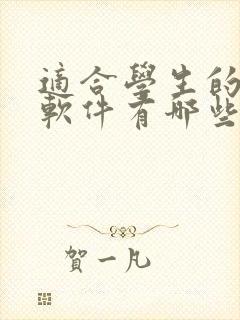 適合學生的
軟件有哪些
賀一凡